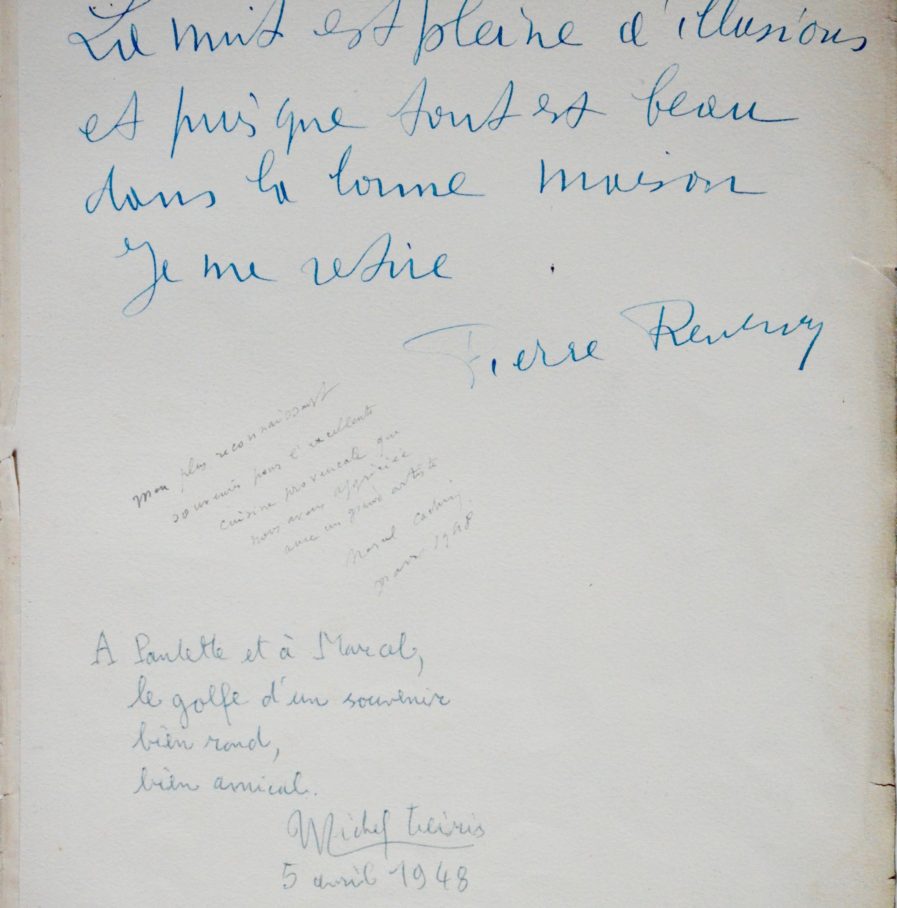 La nuit est pleine d'illusions
et puisque tout est beau
dans la bonne maison
Je me retire .
Pierre Reverdy
mon plus reconnaissant
souvenir pour l'excellente
cuisine provencale que
nous avons appréciée
avec un grand artiste
Marcel Cachin
mars 1948
A Paulette et à Marcel,
le golfe d'un souvenir
bien rond,
bien amical.
Michel Leiris
5 avril 1948